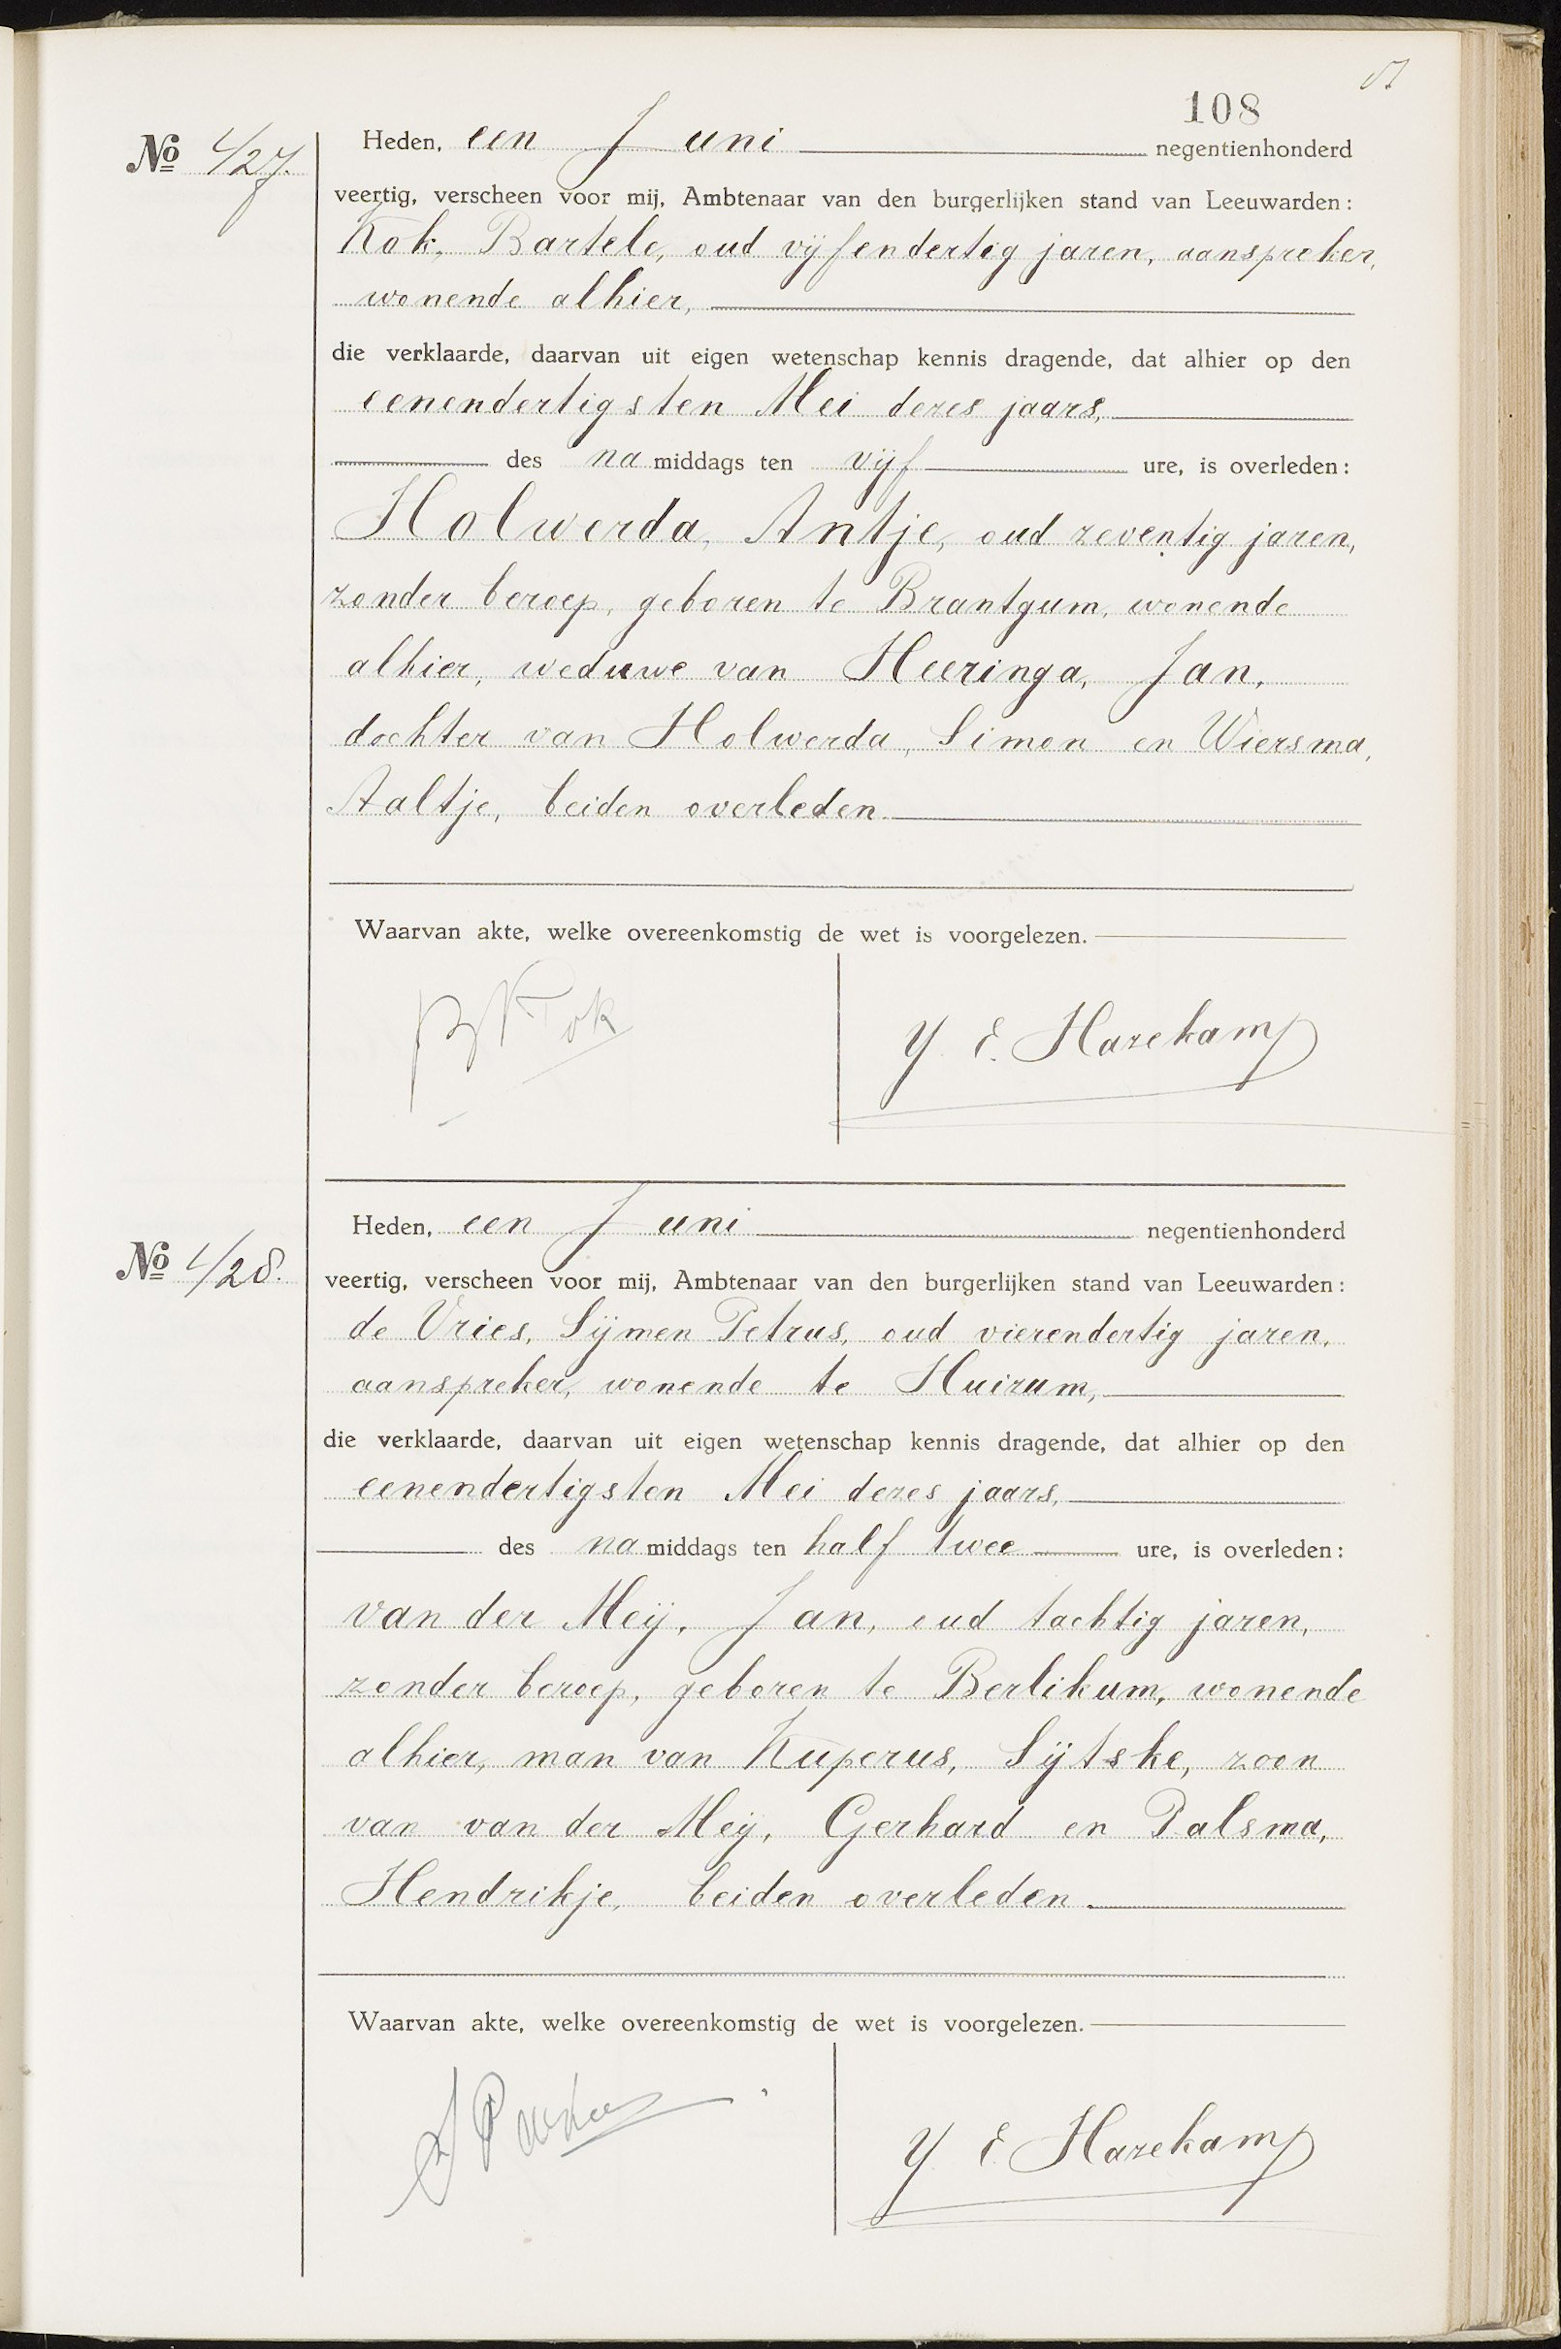 108
№ 427.
Heden, een Juni negentienhonderd
veertig, verscheen voor mij, Ambtenaar van den burgerlijken stand van Leeuwarden:
Kok, Bartele, oud vijfendertig jaren, aanspreker,
wonende alhier,
die verklaarde, daarvan uit eigen wetenschap kennis dragende, dat alhier op den
eenendertigsten Mei dezes jaars,
des na middags ten vijf ure, is overleden:
Holwerda, Antje, oud zeventig jaren,
zonder beroep, geboren te Brantgum, wonende
alhier, weduwe van Heeringa, Jan,
dochter van Holwerda, Simon en Wiersma,
Aaltje, beiden overleden.
Waarvan akte, welke overeenkomstig de wet is voorgelezen.
B Kok
Y. E. Hazekamp
№ 428.
Heden, een Juni negentienhonderd
veertig, verscheen voor mij, Ambtenaar van den burgerlijken stand van Leeuwarden:
de Vries, Sijmen Petrus, oud vierendertig jaren,
aanspreker, wonende te Huizum,
die verklaarde, daarvan uit eigen wetenschap kennis dragende, dat alhier op den
eenendertigsten Mei dezes jaars,
des na middags ten half twee ure, is overleden:
van der Meij, Jan, oud tachtig jaren,
zonder beroep, geboren te Berlikum, wonende
alhier, man van Kuperus, Sijtske, zoon
van van der Meij, Gerhard en Palsma,
Hendrikje, beiden overleden.
Waarvan akte, welke overeenkomstig de wet is voorgelezen.
Y. E. Hazekamp